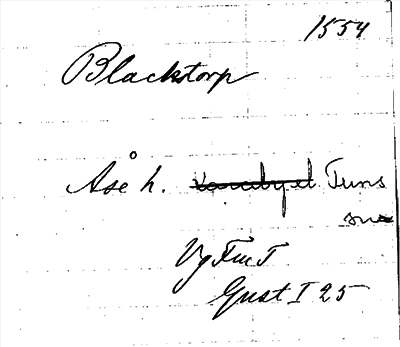 1554
Blackstorp
Åse h. Tuns
sn
Vg Fm T
Gust I 25